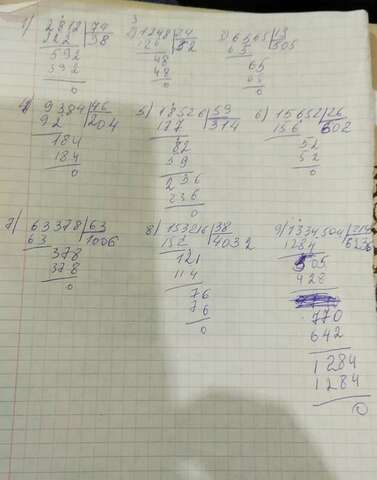 1) 2812 | 74
222 | 38
592
592
0
2) 1248 | 24
120 | 52
48
48
0
3) 6565 | 13
65 | 505
65
65
0
4) 9384 | 46
92 | 204
184
184
0
5) 18526 | 59
177 | 314
82
59
236
236
0
6) 15652 | 26
156 | 602
52
52
0
7) 63378 | 63
63 | 1006
378
378
0
8) 153216 | 38
152 | 4032
121
114
76
76
0
9) 1334504 | 214
1284 | 6236
505
428
770
642
1284
1284
0